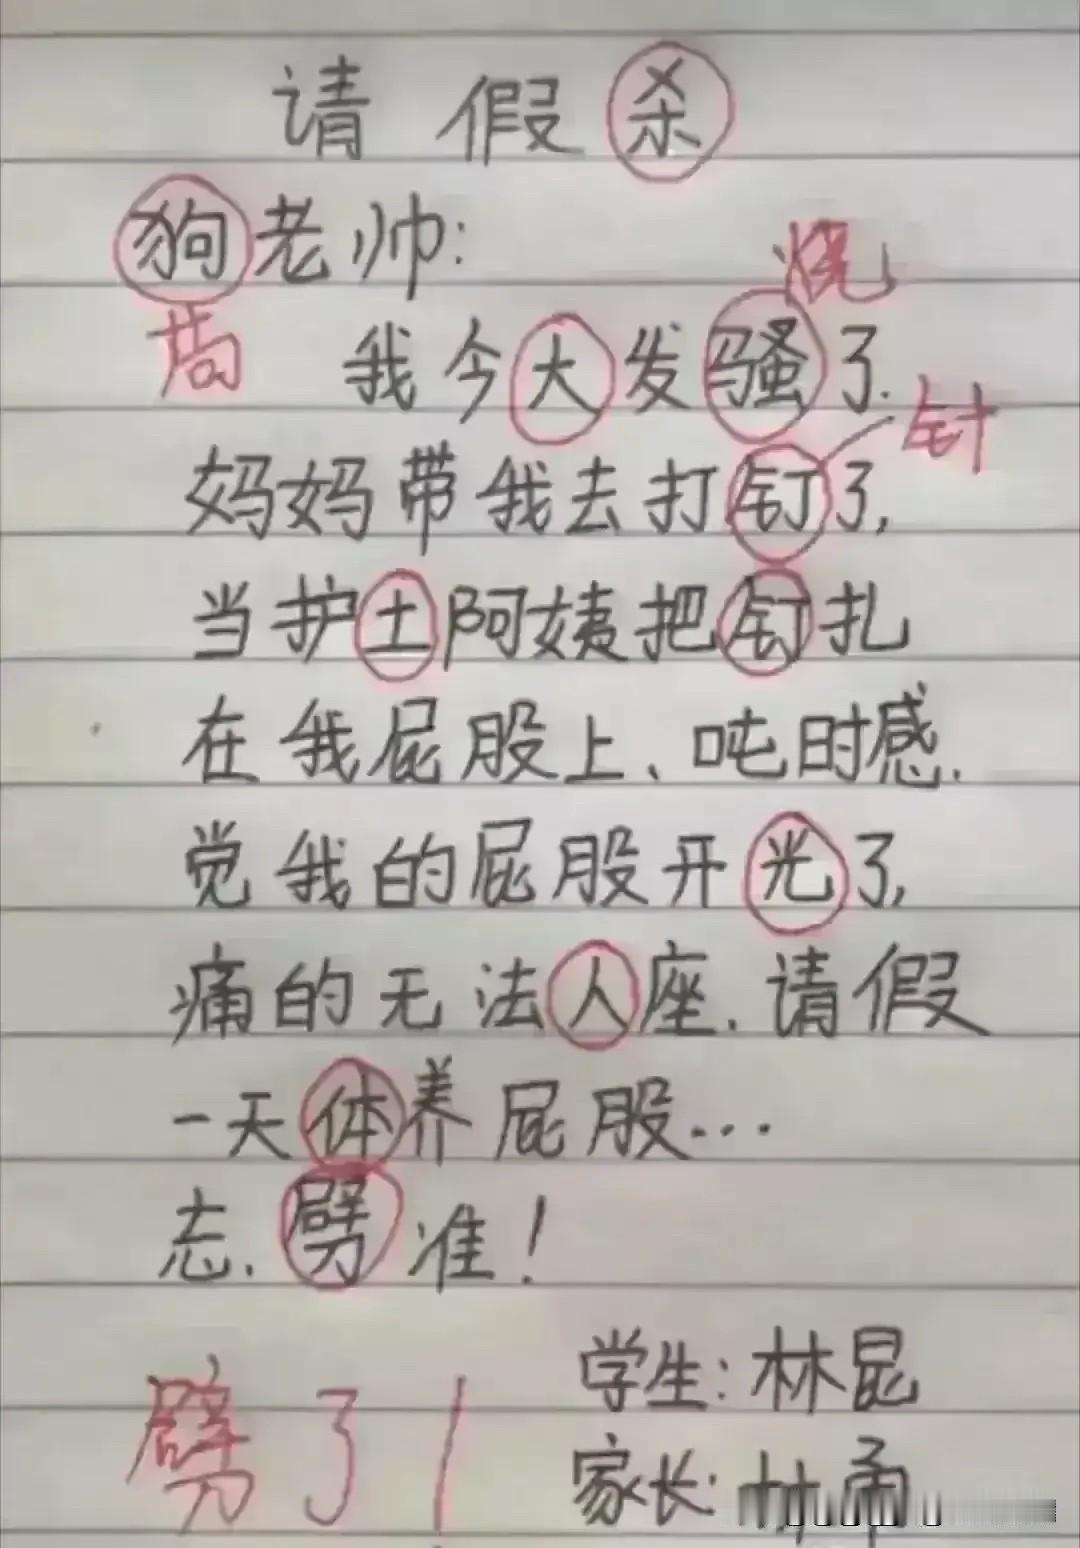 请假杀
狗老帅:
烧
苟
我今大发骚了.
针
妈妈带我去打钉了,
当护土阿姨把钉扎
在我屁股上、吨时感.
觉我的屁股开光了,
痛的无法人座.请假
一天体养屁股...
忘.劈准!
学生:林昆
劈了!
家长:林雨